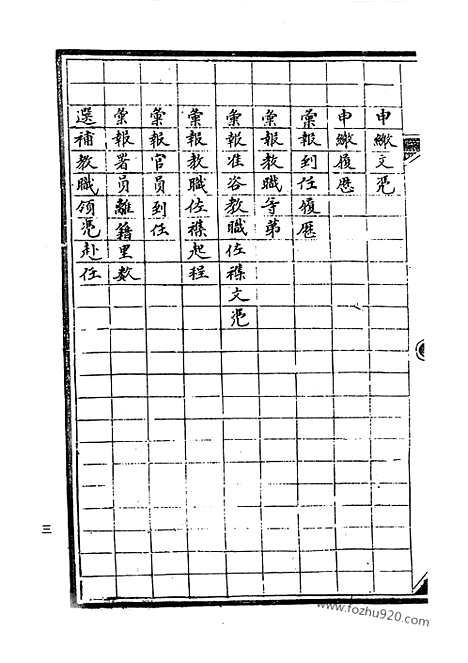 申繳文凭
申繳履歷
彙報到任履歷
彙報教職等第
彙報准咨教職佐襍文凭
彙報教職佐襍起程
彙報官員到任
彙報署員離籍里数
選補教職領凭赴任
三
www.fozhu920.com